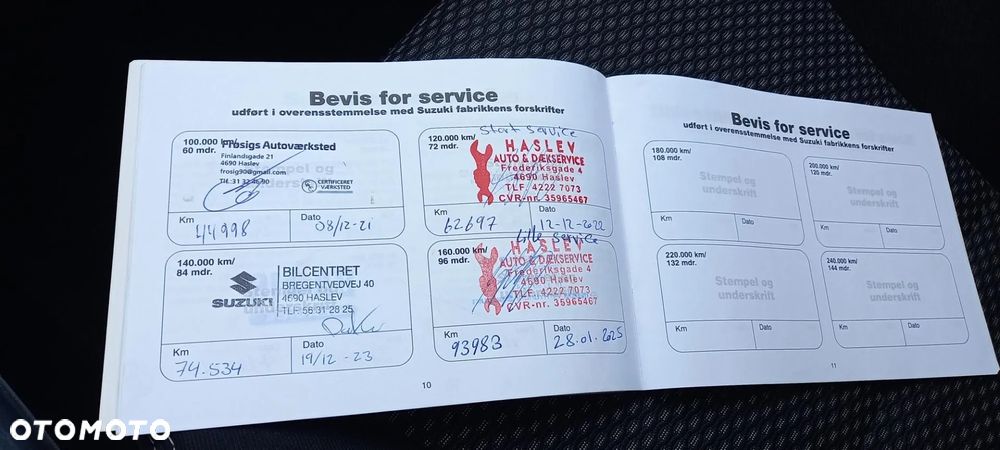 Bevis for service
udført i overensstemmelse med Suzuki fabrikkens forskrifter
100.000 km/
60 mdr.
Frosigs Autoværksted
Finlandsgade 21
4690 Haslev
frosig90@gmail.com
Tlf.:31 32 46 90
CERTIFICERET
VÆRKSTED
Km
44998
Dato
08/12-21
120.000 km/
72 mdr.
Start service
HASLEV
AUTO & DÆKSERVICE
Frederiksgade 4
4690 Haslev
TLF. 4222 7073
CVR-nr. 35965467
Km
62697
Dato
12-12-2022
140.000 km/
84 mdr.
SUZUKI
BILCENTRET
BREGENTVEDVEJ 40
4690 HASLEV
TLF. 56 31 28 25
Km
74.534
Dato
19/12-23
160.000 km/
96 mdr.
Lille service
HASLEV
AUTO & DÆKSERVICE
Frederiksgade 4
4690 Haslev
TLF. 4222 7073
CVR-nr. 35965467
Km
93983
Dato
28.01.2025
10
Bevis for service
udført i overensstemmelse med Suzuki fabrikkens forskrifter
180.000 km/
108 mdr.
Stempel og
underskrift
Km
Dato
200.000 km/
120 mdr.
Stempel og
underskrift
Km
Dato
220.000 km/
132 mdr.
Stempel og
underskrift
Km
Dato
240.000 km/
144 mdr.
Stempel og
underskrift
Km
Dato
11
OTOMOTO